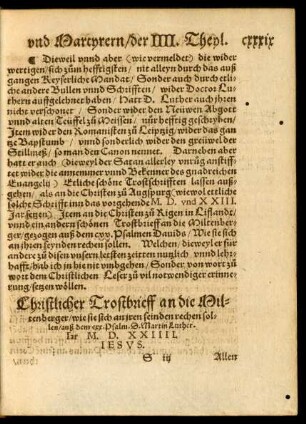 vnd Martyrern/der IIII. Theyl. cxxxix
¶ Dieweil vnnd aber (wie vermeldet) die wider
wertigen/sich zům hefftigsten/nit alleyn durch das auß
gangen Keyserliche Mandat/Sonder auch durch etli
che andere Bullen vnnd Schrifften/wider Doctor Lu
thern außgelehnet haben/Hatt D. Luther auch jhren
nicht verschoner/Sonder wider den Neüwen Abgott
vnnd alten Teüffel zů Meissen/nůr hefftig geschryben/
Item wider den Romanisten zu Leiptzig/wider das gan
tze Bapstumb/vnd sonderlich wider den greüwel der
Stillmeß/so man den Canon nennet. Darneben aber
hatt er auch (dieweyl der Satan allerley vnrůg anstiff-
tet wider die annemmer vnnd Bekenner des gnadreichen
Euangeln) Etliche schöne Trostschrifften lassen außs
gehen/als an die Christen zu Augspurg (wie wol etliche
solche Schrifft inn das vorgehende M. D. vnd XXIII.
Jar setzen). Item an die Christen zu Rigen in Liffland/
vnnd ein andern schönen Trostbrieff an die Miltenber-
ger/gezogen auß dem cxx. Psalmen Dauids/Wie sie sich
an jhren feynden rechen sollen. Welchen/dieweyl er für
andere zu disen vnsern letsten zeitten nutzlich vnnd lehr-
hafft/hab ich jn hie nit vmbgehen/Sonder von wort zů
wort dem Christlichen Leser zů vil notwendiger erinne-
rung/setzen wöllen.
Christlicher Trostbrieff an die Mil-
tenberger/wie sie sich an jren feinden rechen sol-
len/auß dem cxx. Psalm. D. Martin Luther.
Jar M. D. XXIIII.
IESVS.
S iij Allen